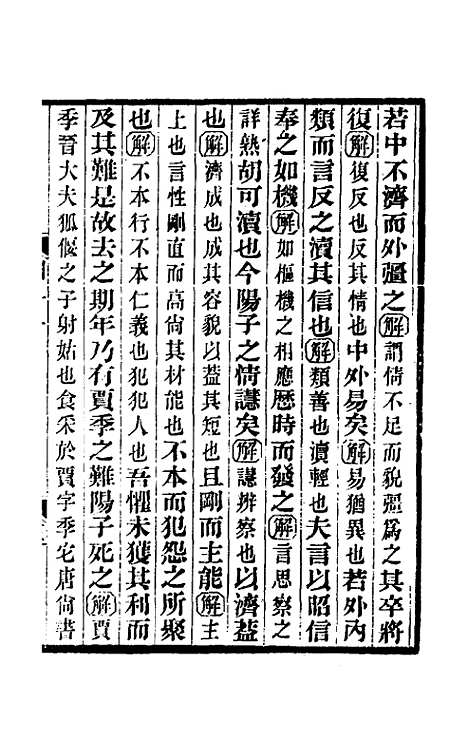 若中不濟而外彊之解謂情不足而貌彊為之其卒將
復解復反也反其情也中外易矣解易猶異也若外內
類而言反之瀆其信也解類善也瀆輕也夫言以昭信
奉之如機解如樞機之相應歷時而發之解言思察之
詳熟胡可瀆也今陽子之情譓矣解譓辨察也以濟蓋
也解濟成也成其容貌以蓋其短也且剛而主能解主
上也言性剛直而高尙其材能也不本而犯怨之所聚
也解不本行不本仁義也犯犯人也吾懼未獲其利而
及其難是故去之期年乃有賈季之難陽子死之解賈
季晉大夫狐偃之子射姑也食采於賈字季它唐尙書